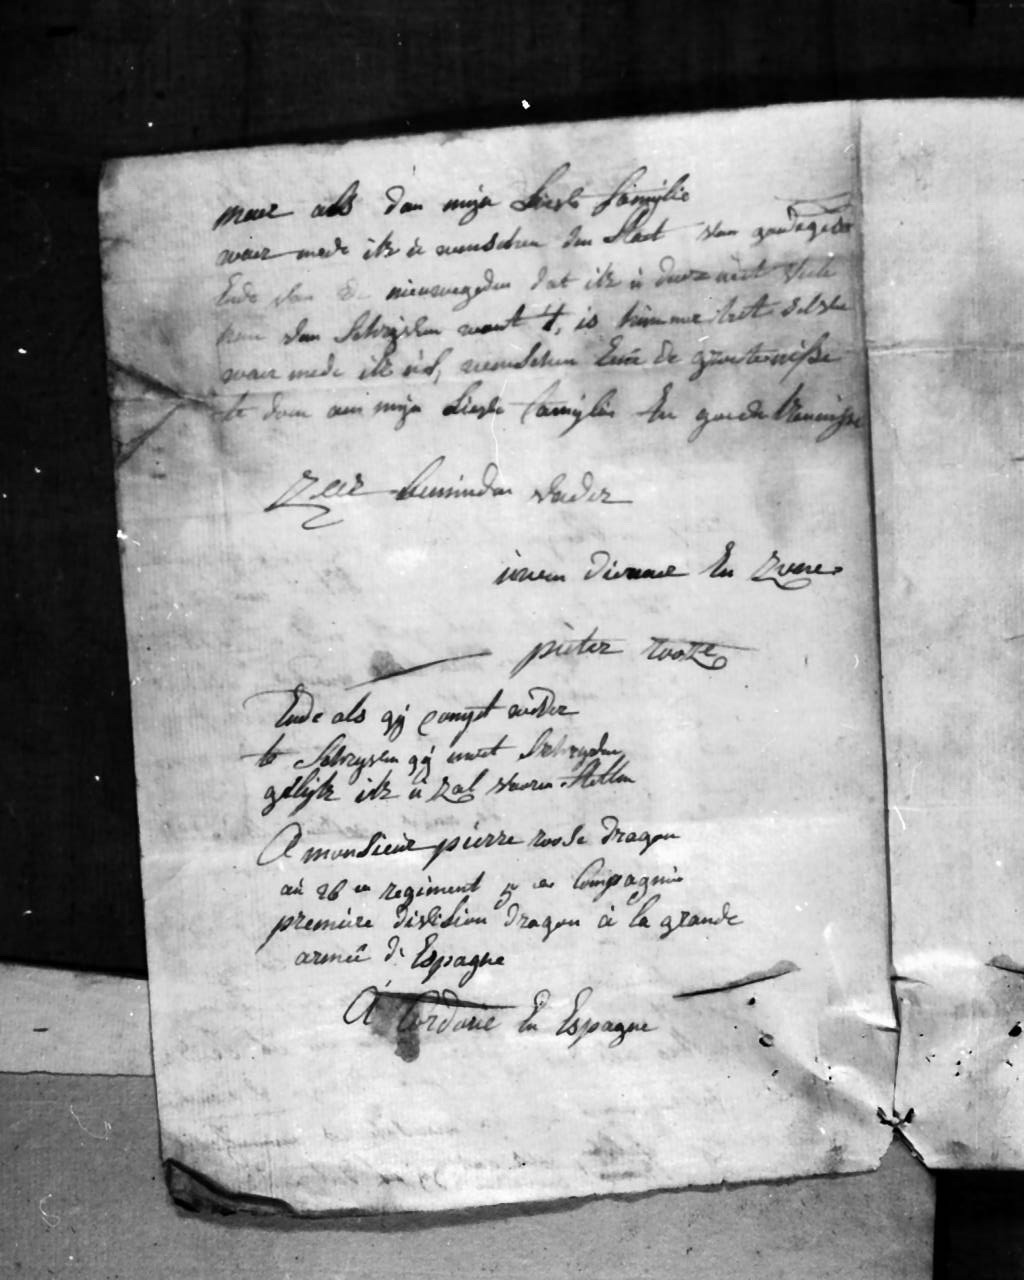 maer als dan mijn Lieste famijlie
waer mede ik ù wenschen den Slact van
Ende van de dat ik ù niet
van Schryven want t, is
waer mede ik wenschen Ende de groetenisse
te doen aen mijn Lieste familie En goede kennisse
Zeer beminden vader
ùwen dienaer En Zone
pieter rooze
Ende als gÿ compt weder
te Schryven gÿ moet Schryven
gelijk ik ù zal vooren stellen
A monsieur pierre roose dragon
aù 26 em regiment 5 em Compagnie
premiere division dragon à la grande
armeé d'Espagne
A Cordoue En Espagne